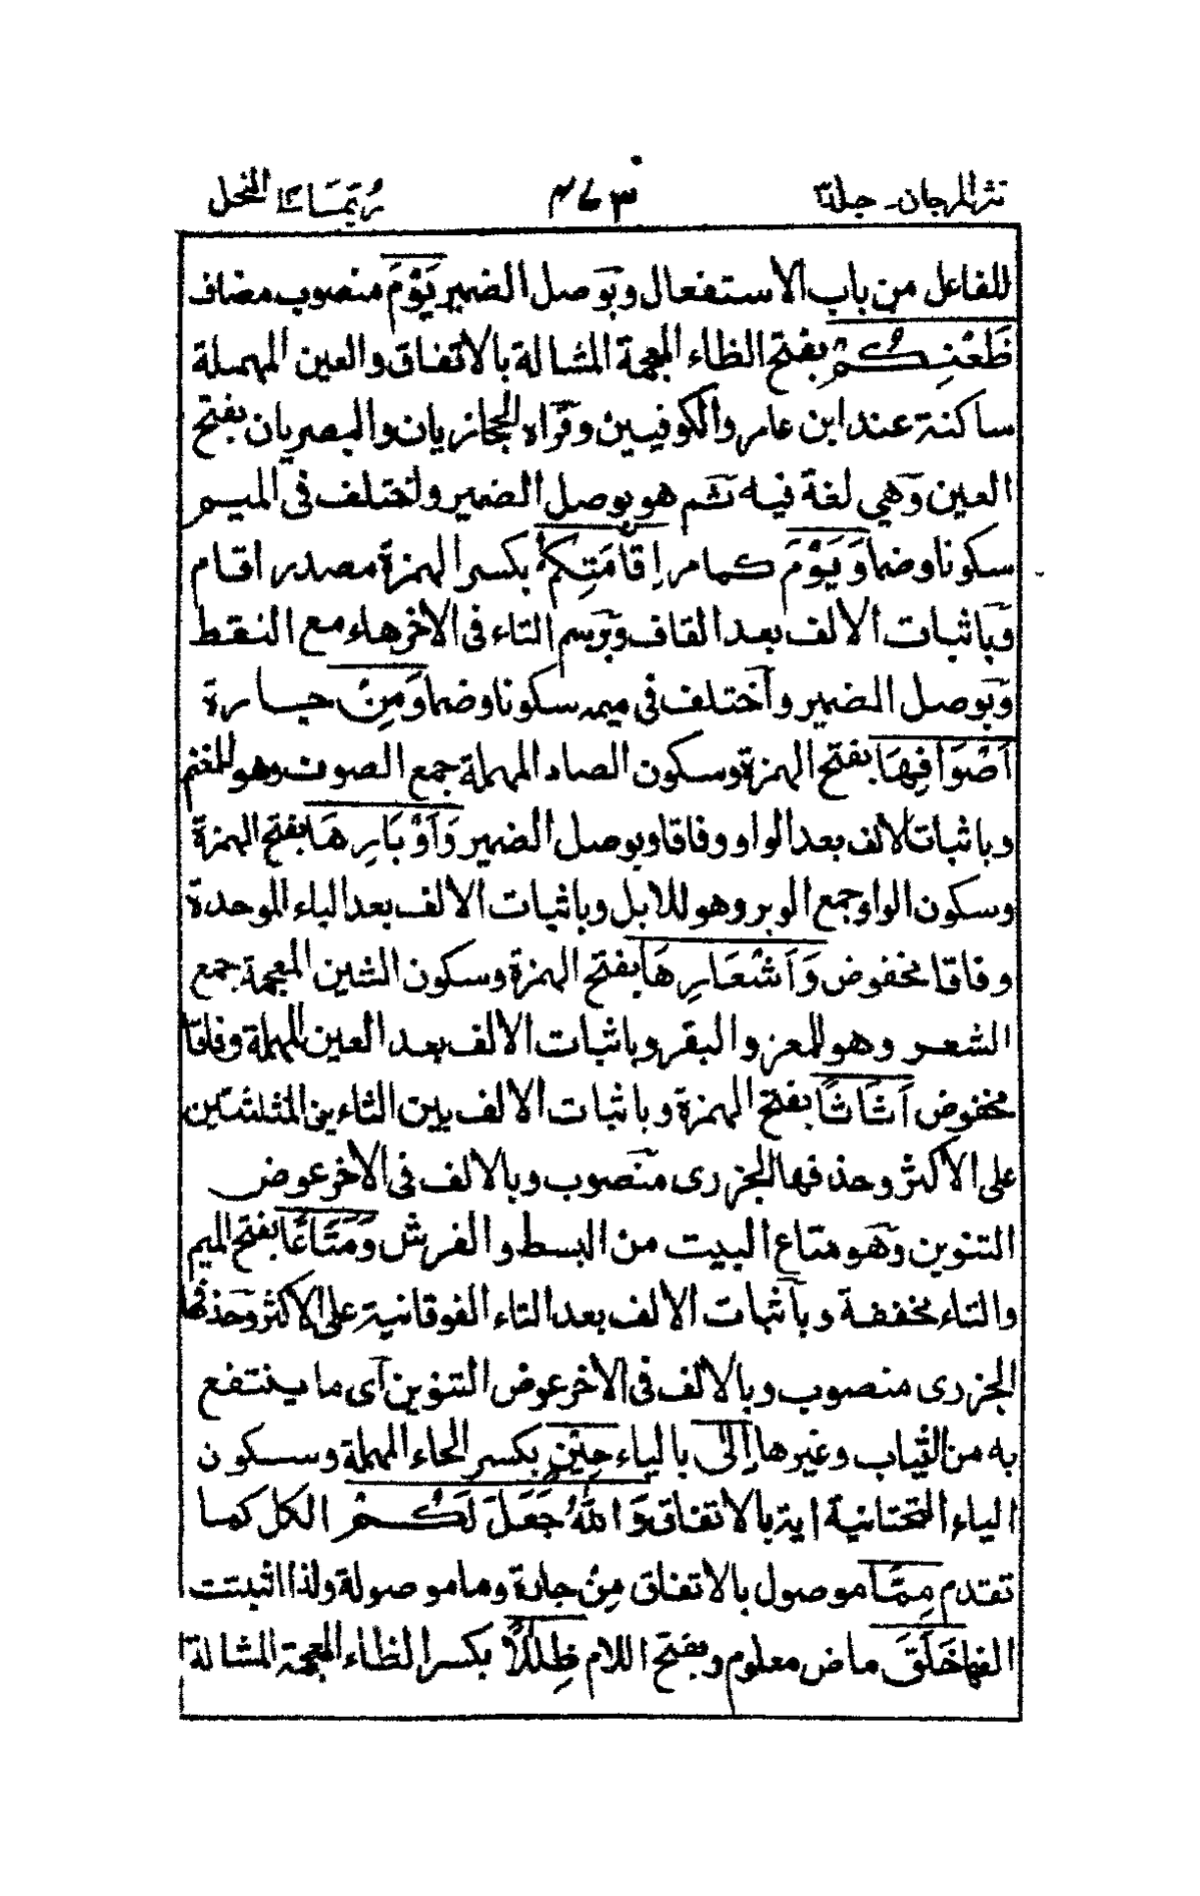 نثر المرجان - جلد٣
٣٧٣
ربما النحل
للفاعل من باب الاستفعال وبوصل الضمير يَوْمَ منصوب مضاف
ظَعْنِكُمْ بفتح الظاء المعجمة المشالة بالاتفاق والعين المهملة
ساكنة عند ابن عامر والكوفيين وقراه الحجازيان والبصريان بفتح
العين وهي لغة فيه ثم هو بوصل الضمير واختلف في الميم
سكونا وضما وَيَوْمَ كمامر إِقَامَتِكُمْ بكسر الهمزة مصدر اقام
وباثبات الالف بعد القاف وبرسم التاء في الاخر هاء مع النقط
وبوصل الضمير واختلف في ميمه سكونا وضما وَمِنْ جارة
اَصْوَافِهَا بفتح الهمزة وسكون الصاد المهملة جمع الصوف وهو للغنم
وباثبات الالف بعد الواو وفاقا وبوصل الضمير وَاَوْبَارِهَا بفتح الهمزة
وسكون الواو جمع الوبر وهو للابل وباثبات الالف بعد الباء الموحدة
وفاقا مخفوض وَاَشْعَارِهَا بفتح الهمزة وسكون الشين المعجمة جمع
الشعر وهو للمعز والبقر وباثبات الالف بعد العين المهملة وفاقا
مخفوض اَثَاثًا بفتح الهمزة وباثبات الالف بين الثاءين المثلثتين
على الاكثر وحذفها الجزرى منصوب وبالالف في الاخر عوض
التنوين وهو متاع البيت من البسط والفرش وَمَتَاعًا بفتح الميم
والتاء مخففة وباثبات الالف بعد التاء الفوقانية على الاكثر وحذفها
الجزرى منصوب وبالالف في الاخر عوض التنوين اى ما ينتفع
به من الثياب وغيرها إِلَى بالياء حِيْنٍ بكسر الحاء المهملة وسكون
الياء التحتانية اية بالاتفاق وَاللهُ جَعَلَ لَكُمْ الكل كما
تقدم مِمَّا موصول بالاتفاق مِنْ جارة وما موصولة ولذا اثبتت
الفها خَلَقَ ماض معلوم وبفتح اللام ظِلٰلًا بكسر الظاء المعجمة المشالة